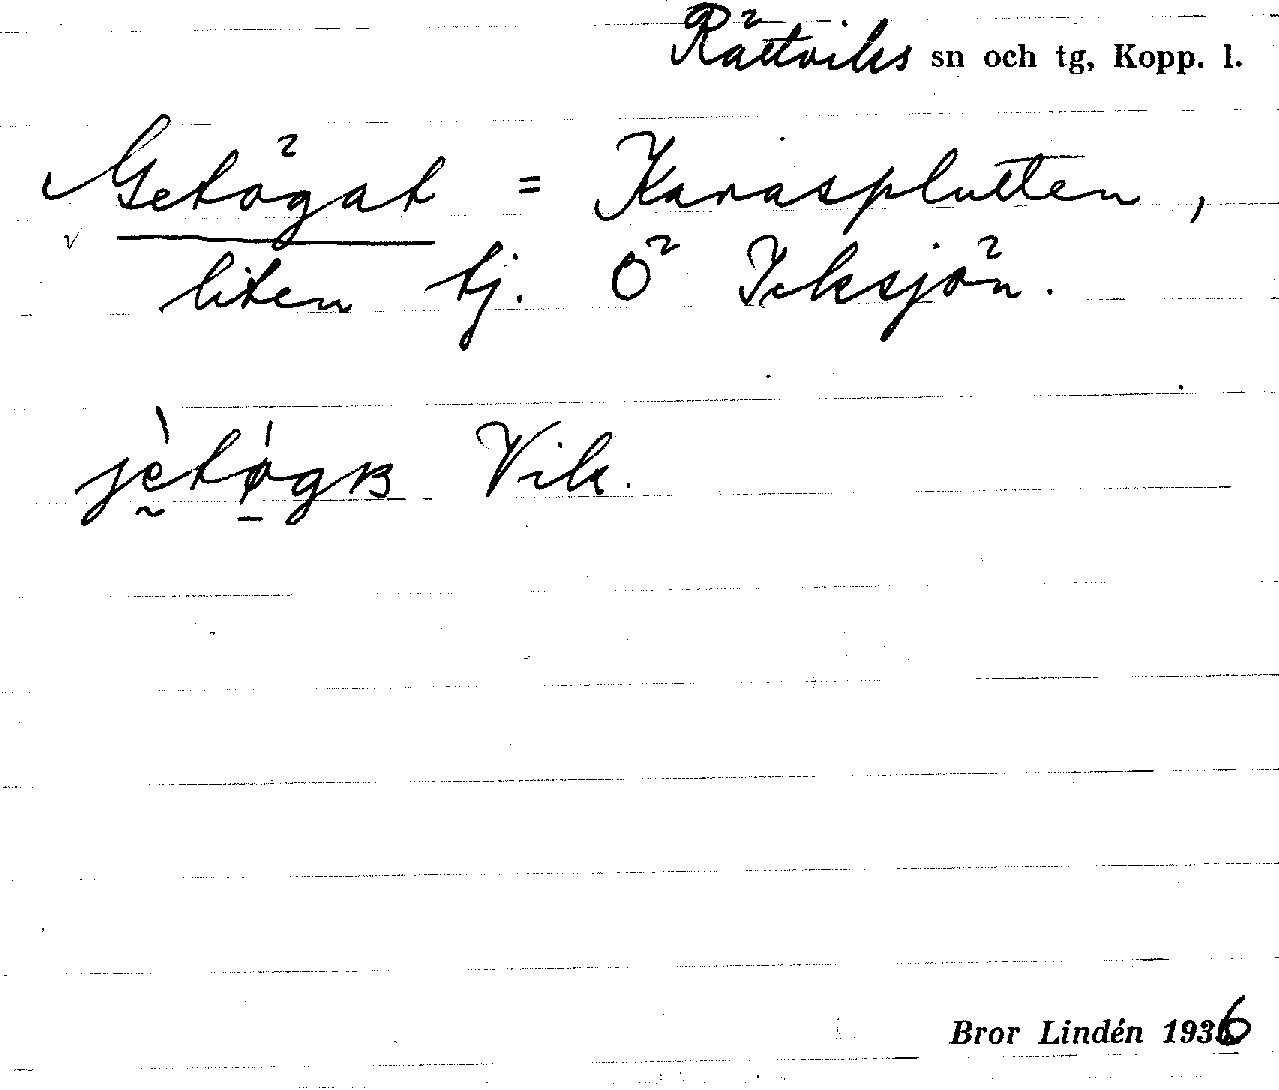 Rättviks sn och tg, Kopp. l.
Getögat = Karasplutten,
liten tj. Ö Icksjön.
jètǿgʙ Vik.
Bror Lindén 1936